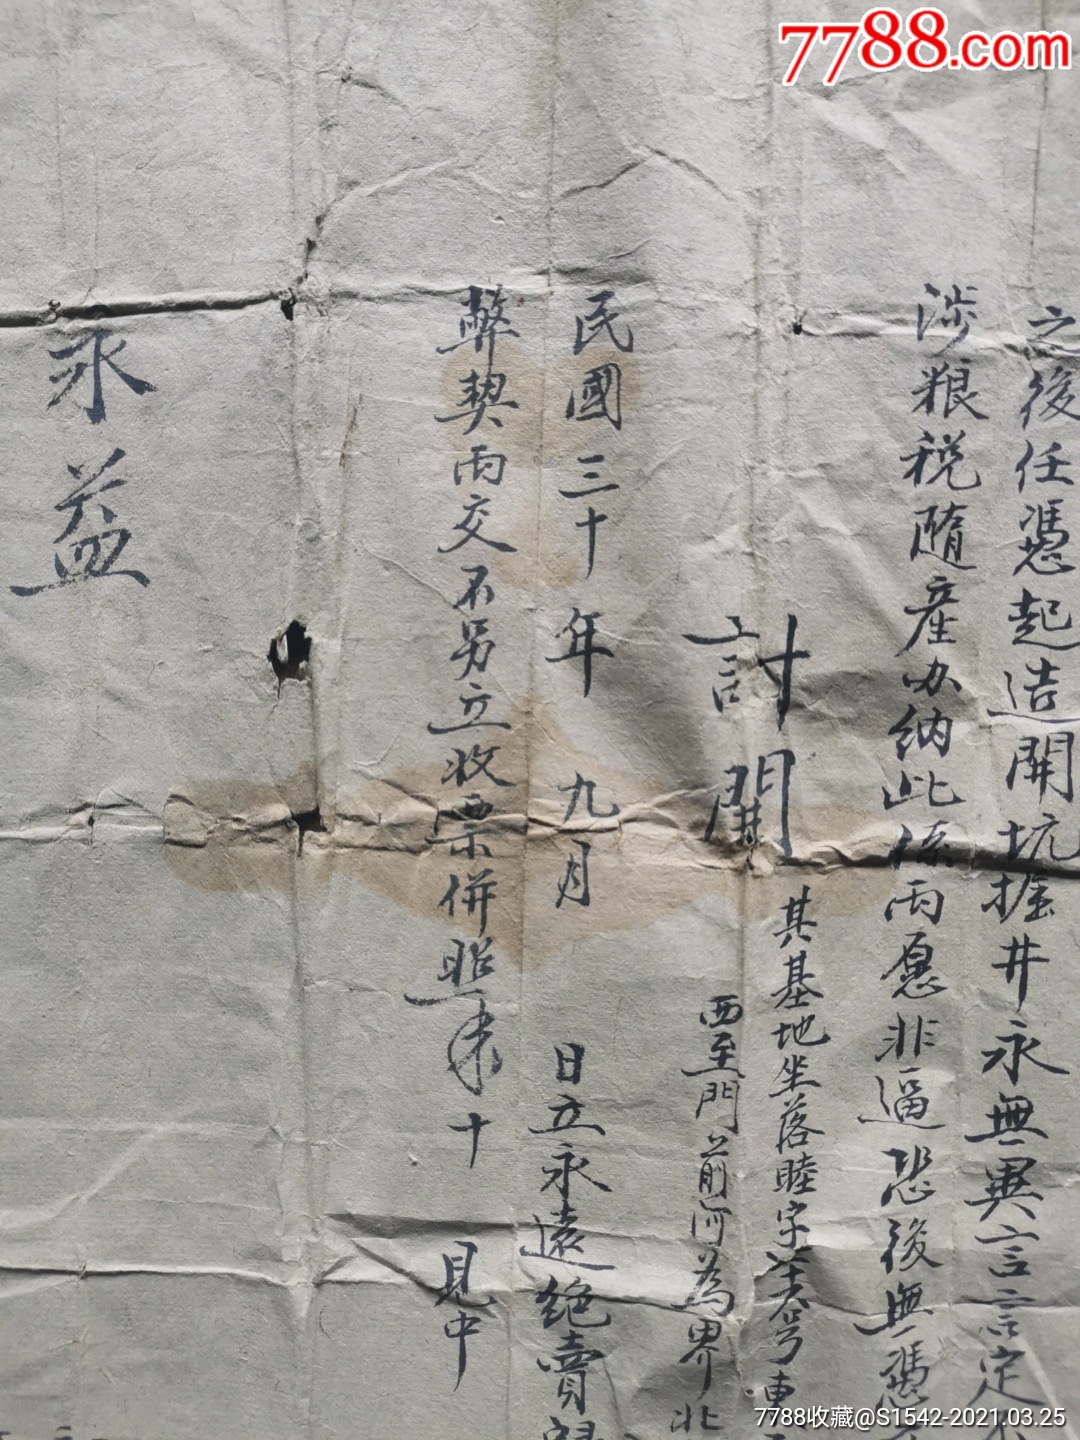 7788.com
之後任憑起造開坑掘井永無異言言定
涉粮税隨產办納此係両愿非逼恐後無憑
計開
其基地坐落睦字
號東
西至門前河為界北
民國三十年九月 日立永遠絕賣
契両交不另立收票併照 十 見中
永益
7788收藏@S1542-2021.03.25